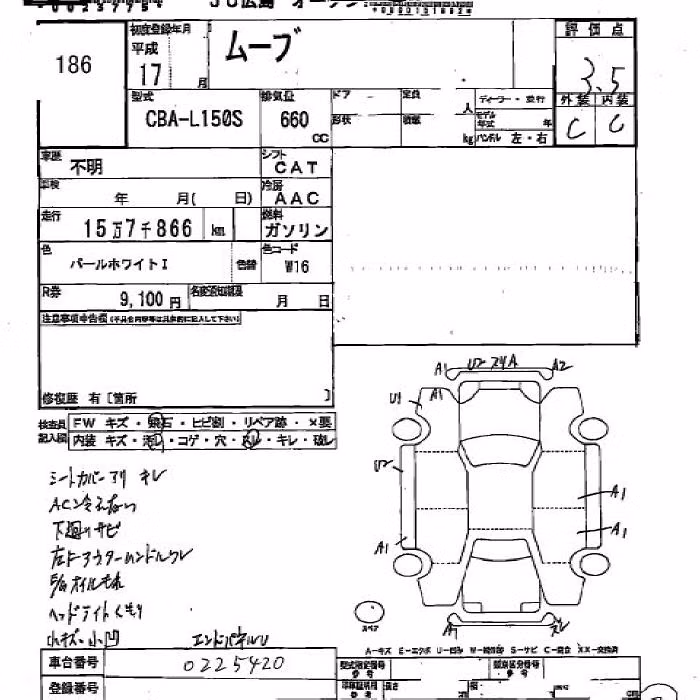 JU広島
186
初度登録年月
平成
17 月
ムーブ
評価点
3.5
型式
CBA-L150S
排気量
660 CC
ドア
定員
人
形状
積載
kg
ディーラー・並行
モデル年式 年
ハンドル 左・右
外装 内装
C C
車歴
不明
シフト
CAT
車検
年 月( 日)
冷房
AAC
走行
15万7千866 km
燃料
ガソリン
色
パールホワイトI
色替
色コード
W16
R券
9,100円
名変通知期限
月 日
注意事項申告欄(不具合内容等は具体的に記入して下さい)
修復歴 有[箇所 ]
検査員記入欄
FW キズ・飛石・ヒビ割・リペア跡・×要
内装 キズ・汚レ・コゲ・穴・スレ・キレ・破レ
シートカバーアリ キレ
ACン冷えない
下廻りサビ
左Fアウターハンドルワレ
E/Gオイルもれ
ヘッドライトくもり
小キズ・小凹
エンドパネルU
A1 U2 スリA A2
U1 A1
U2
A1
A1
A1
スペア
A1 スレ
A-キズ E-エクボ U-凹み W-補修跡 S-サビ C-腐食 XX-交換済
車台番号
0225420
型式指定番号
類別区分番号
登録番号
長さ